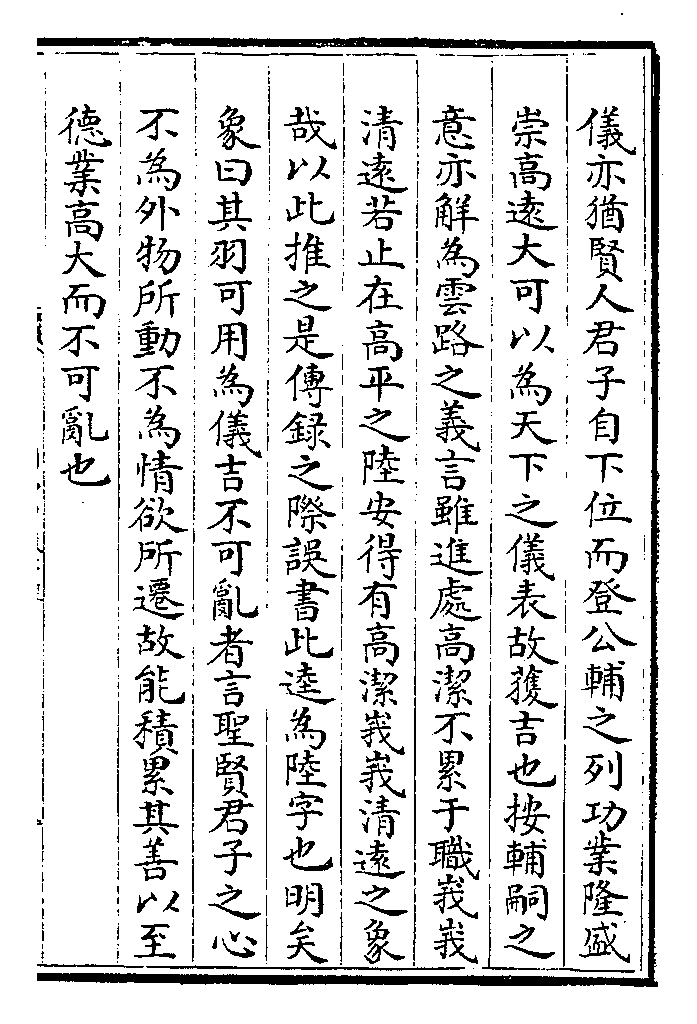 儀亦猶賢人君子自下位而登公輔之列功業隆盛
崇高遠大可以為天下之儀表故獲吉也按輔嗣之
意亦解為雲路之義言雖進處高潔不累于職峩峩
清遠若止在高平之陸安得有高潔峩峩清遠之象
哉以此推之是傳録之際誤書此逵為陸字也明矣
象曰其羽可用為儀吉不可亂者言聖賢君子之心
不為外物所動不為情欲所遷故能積累其善以至
德業高大而不可亂也